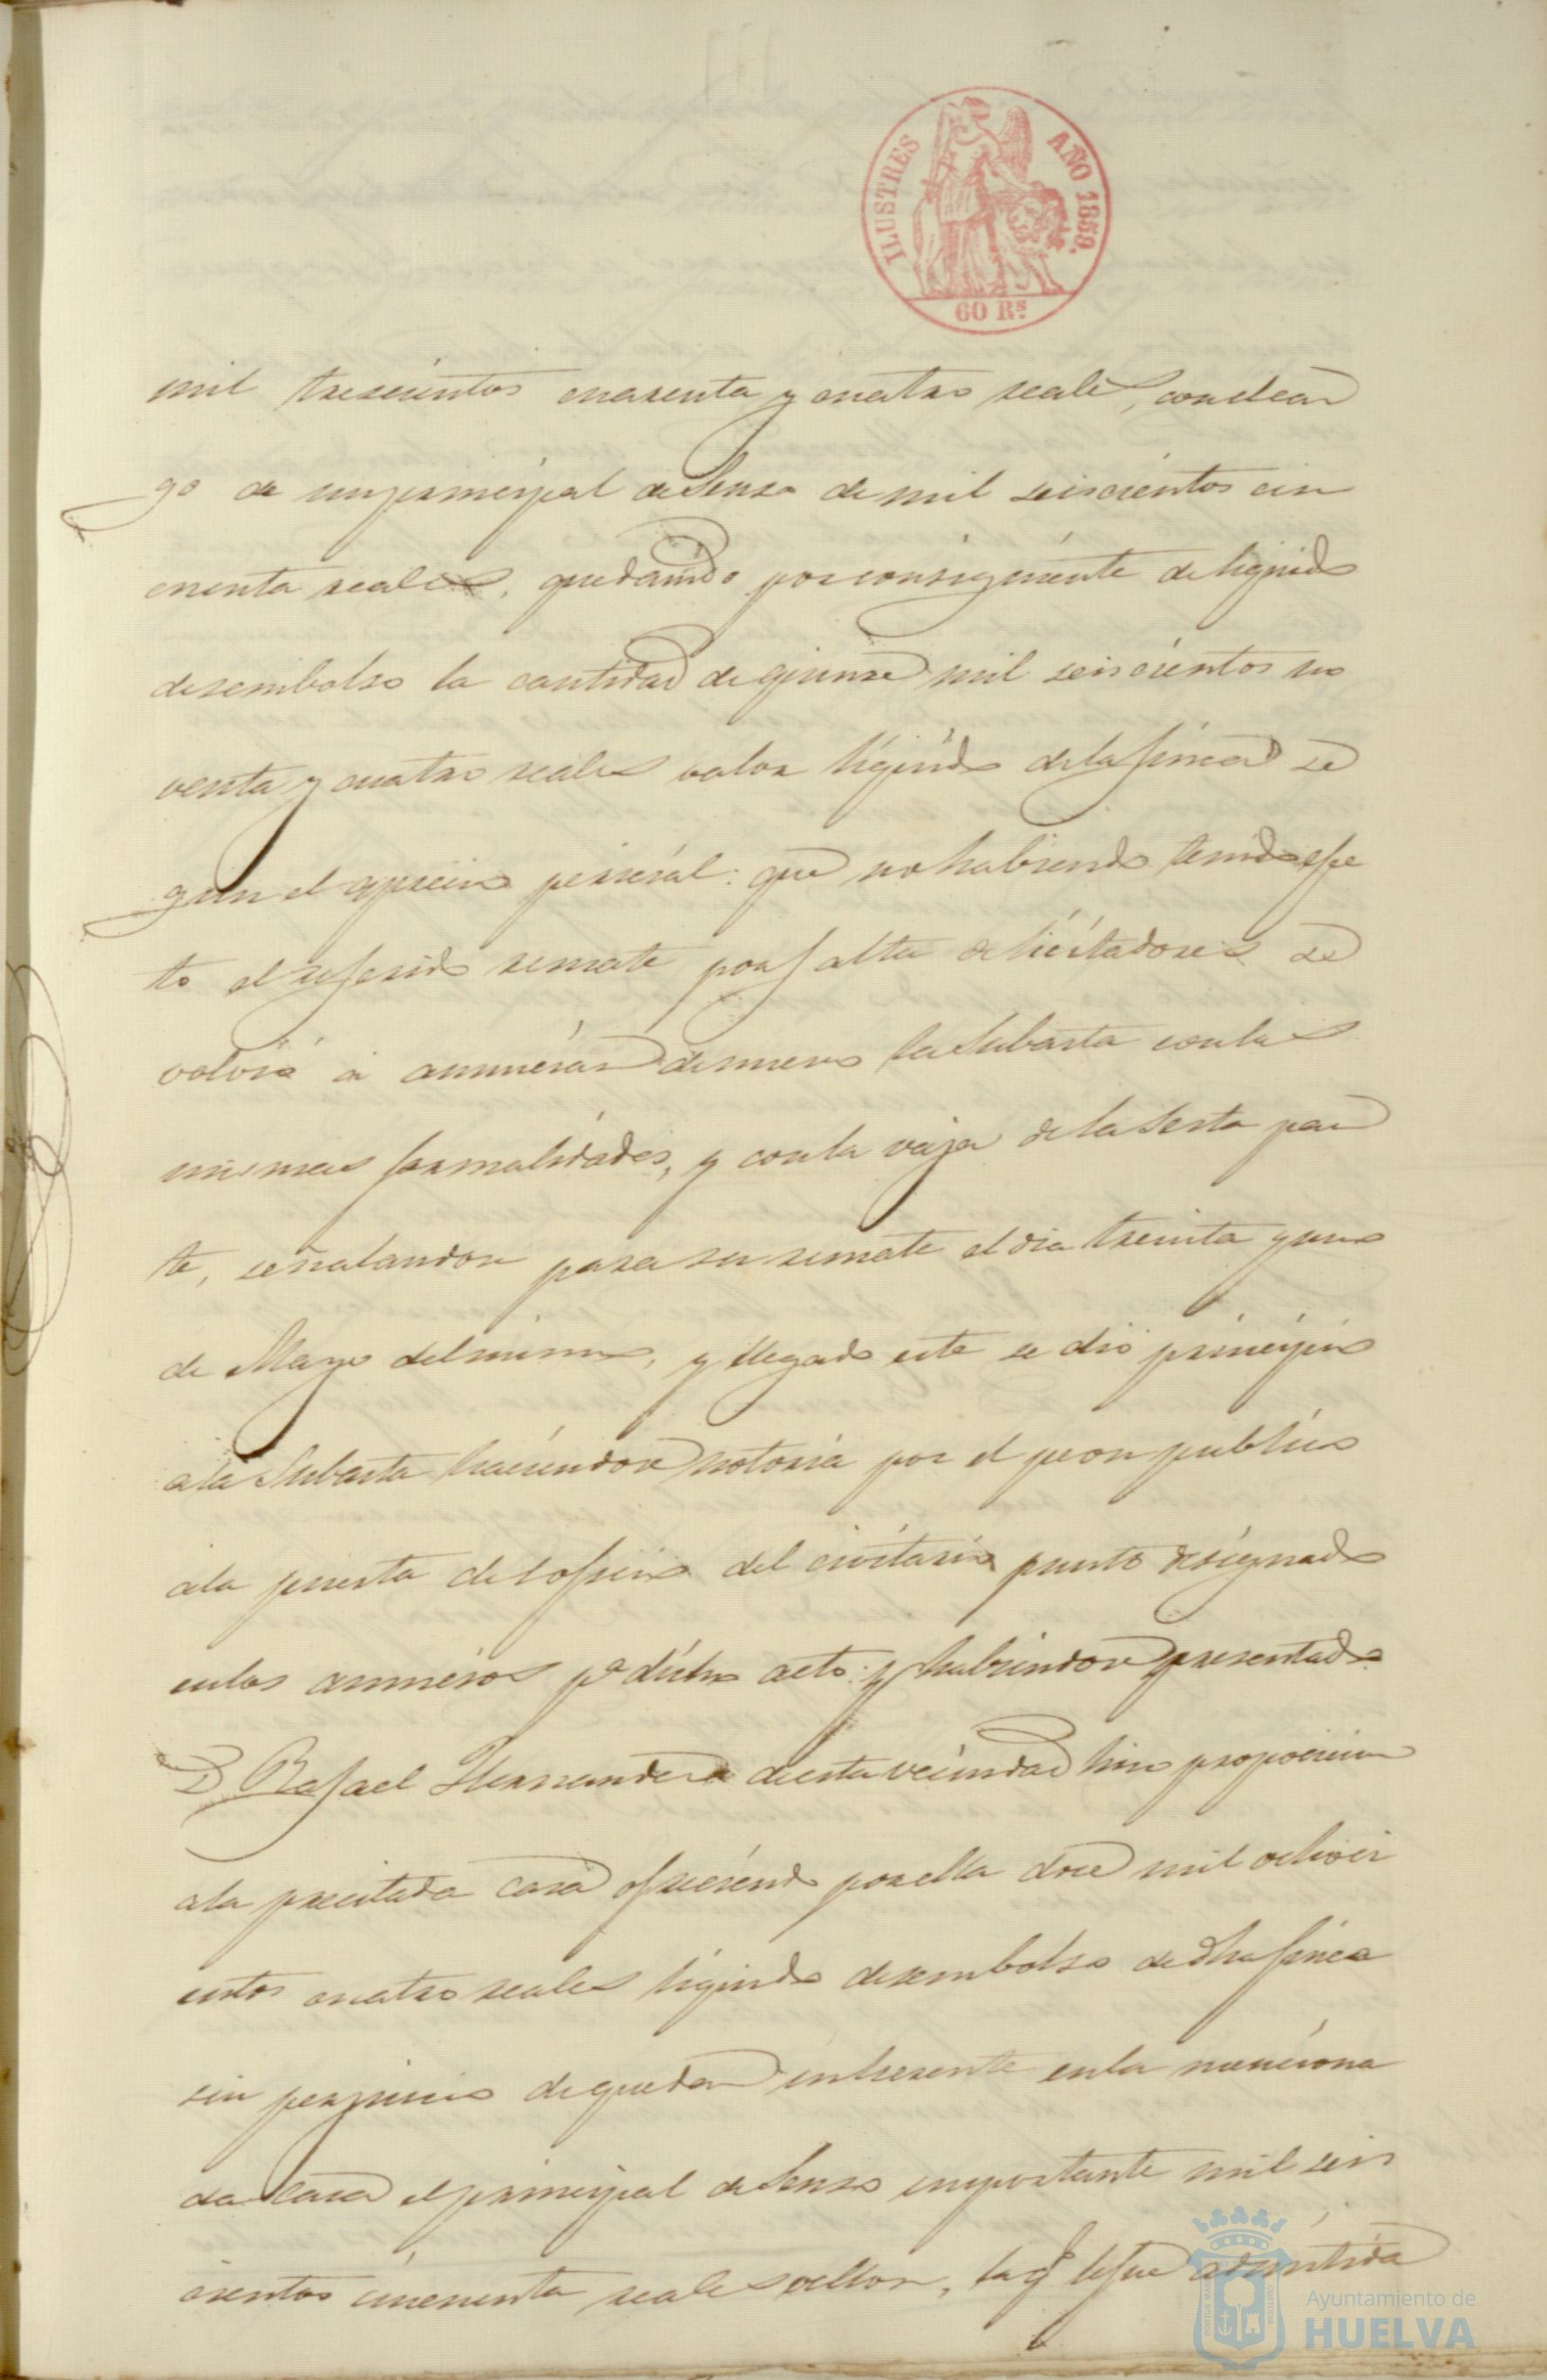 ILUSTRES AÑO 1858.
60 Rs
mil trescientos cuarenta y cuatro reales, con el car
go de un principal de Senso de mil seiscientos cin
cuenta reales, quedando por consiguiente de liquido
desembolso la cantidad de quinze mil seiscientos no
venta y cuatro reales valor liquido de la finca se
gun el aprecio pericial: que no habiendo tenido efe
to el referido remate por falta de licitadores se
volvió á anunciar de nuevo la Subasta con las
mismas formalidades, y con la vaja de la Sesta par
te, señalandose para su remate el dia treinta y uno
de Mayo del mismo, y llegado este se dió principio
a la Subasta haciendose notoria por el peon publico
a la puerta del oficio del escritario punto designado
en los anuncios pa dicho acto: y habiendose presentado
D. Rafael Hernandez de esta vecindad hizo proposicion
a la precitada casa ofreciendo por ella doce mil ochoci
entos cuatro reales liquido desembolso de dha finca
sin perjuicio de quedar inherente en la menciona
da Casa el principal de Senso importante mil seis
cientos cincuenta reales vellon, la q. le fue admitida
Ayuntamiento de
HUELVA